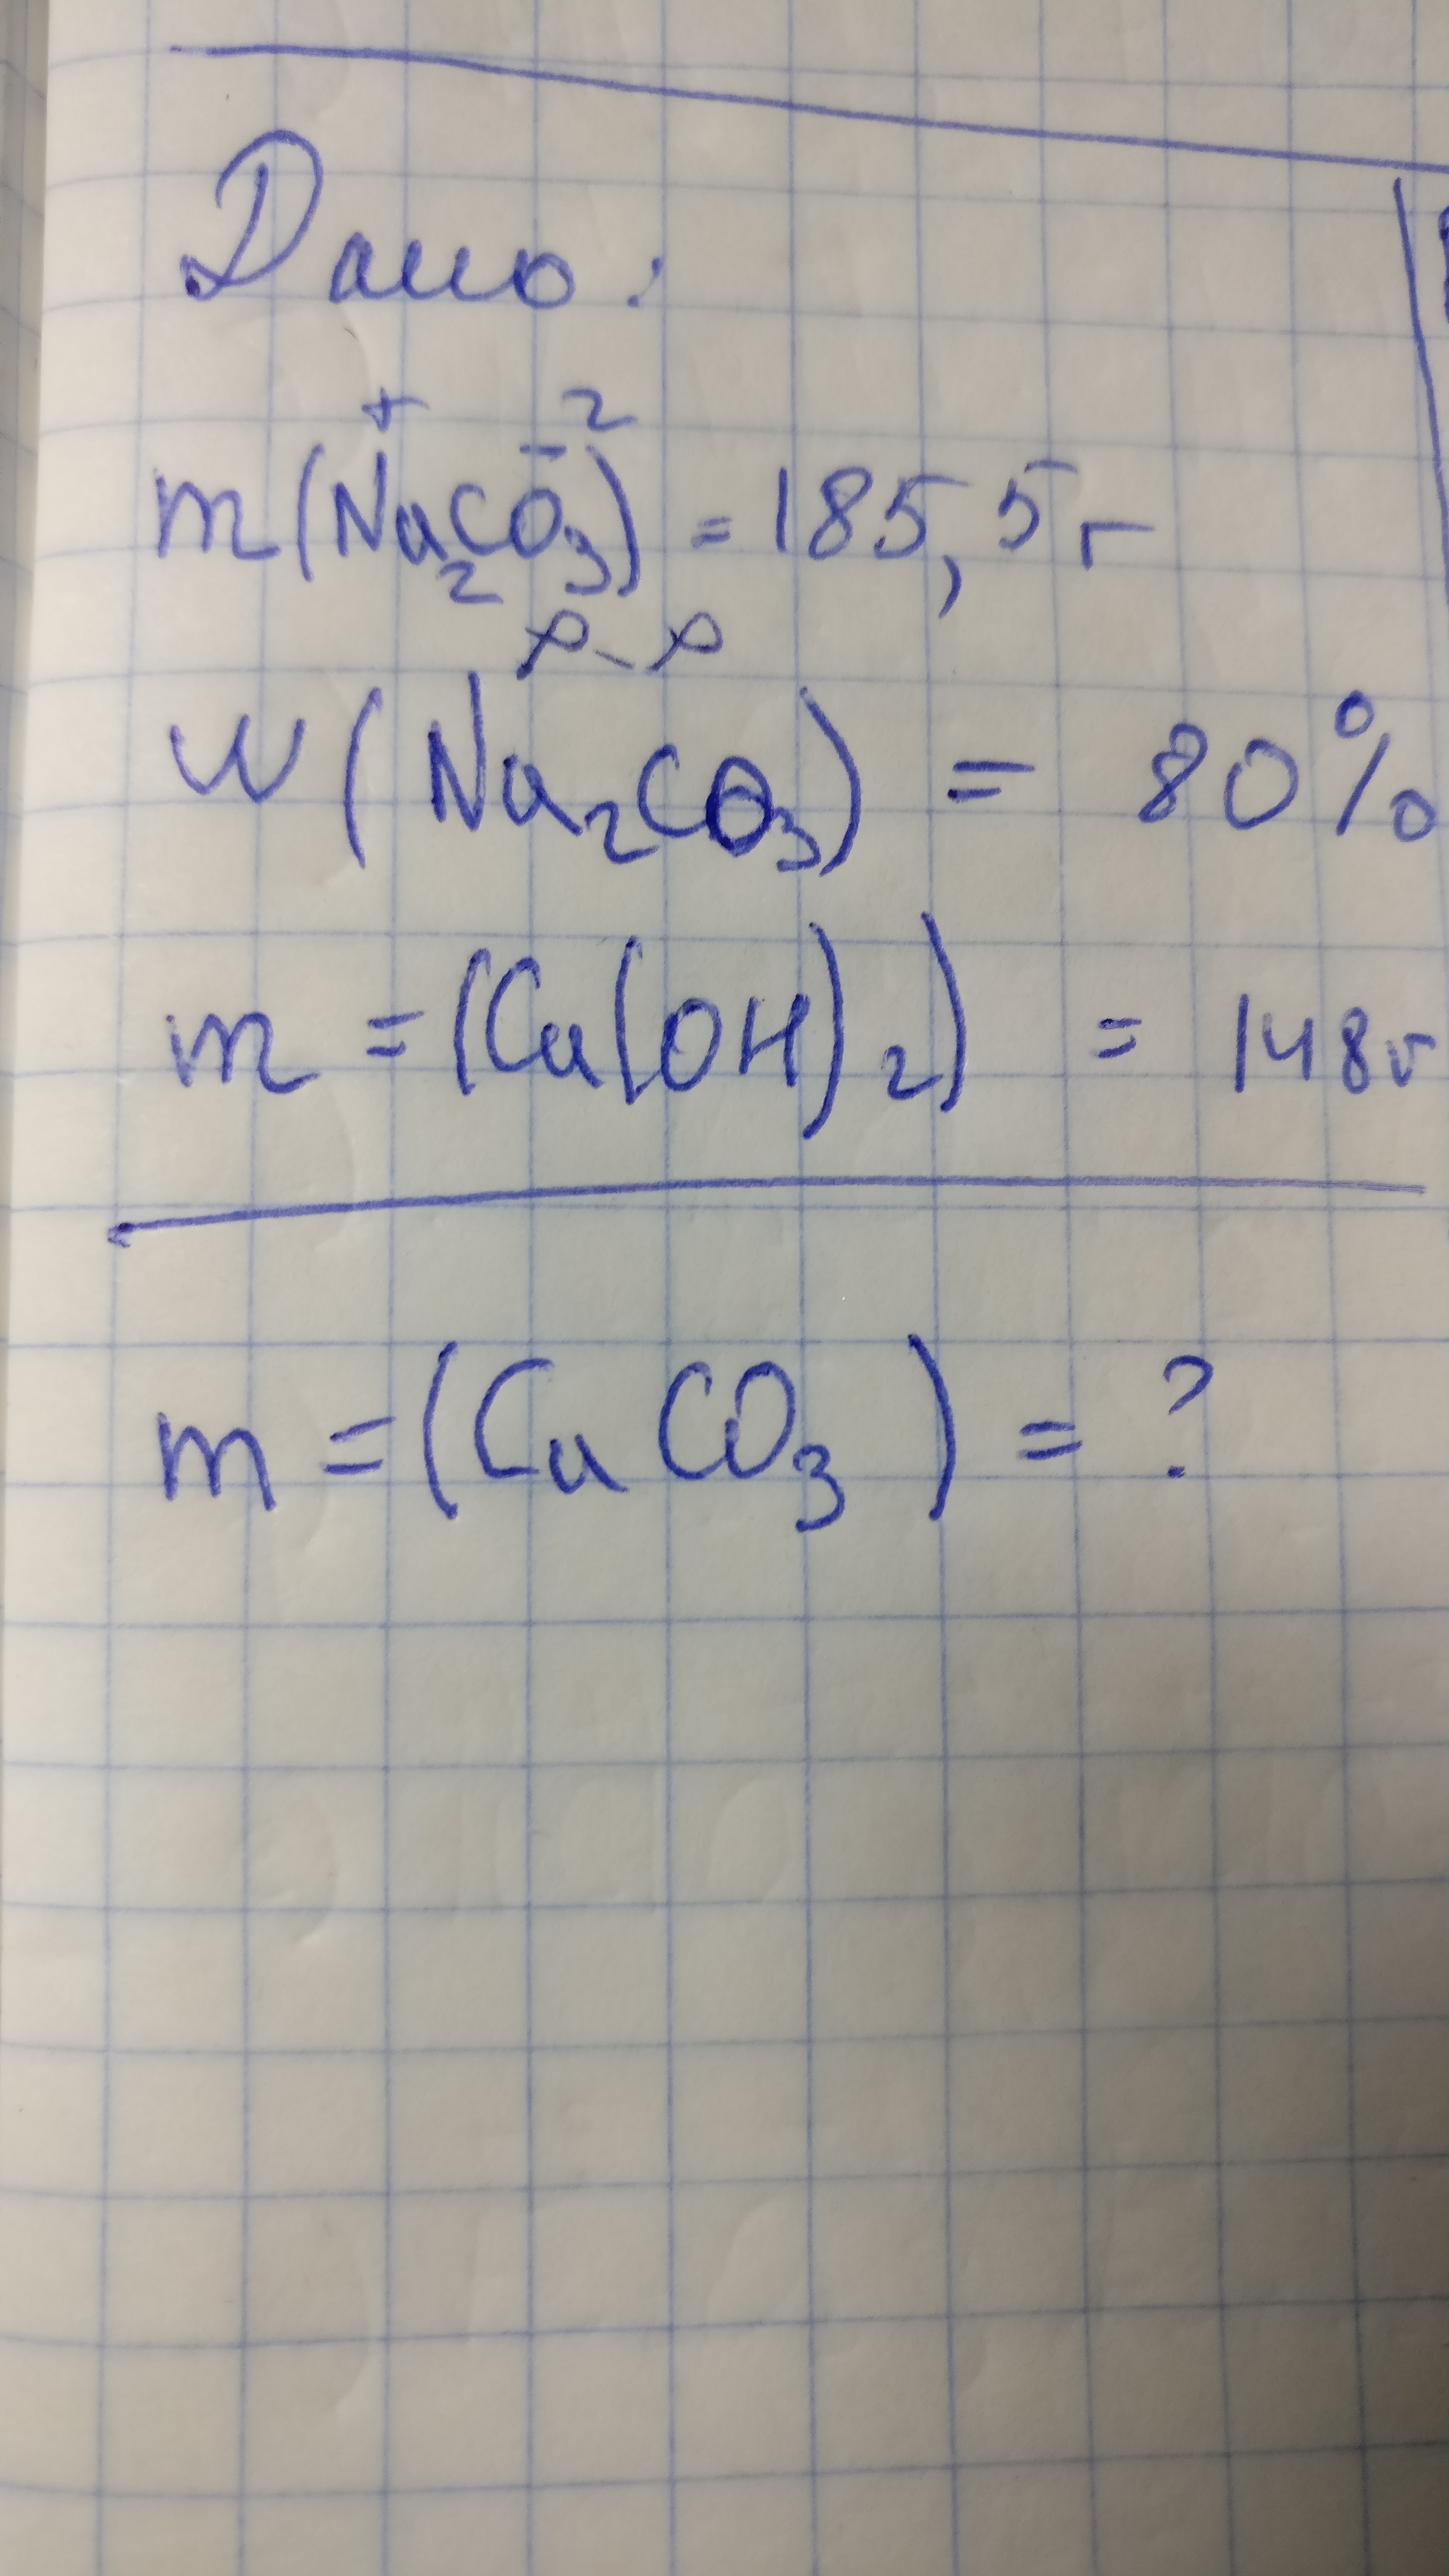 Дано:
+ 2-
m(Na₂CO₃) = 185,5 г
р-р
w(Na₂CO₃) = 80%
m = (Ca(OH)₂) = 148г
m = (CaCO₃) = ?